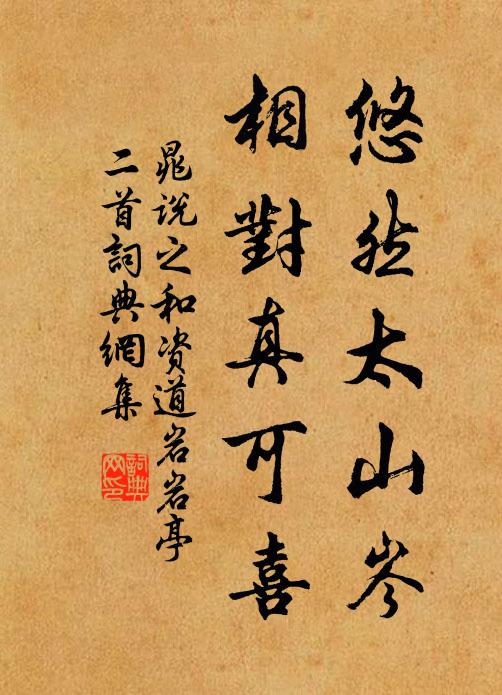 悠然太山岑
相對真可喜
晁説之和資道岩岩亭
二首詞典網集
詞典网印